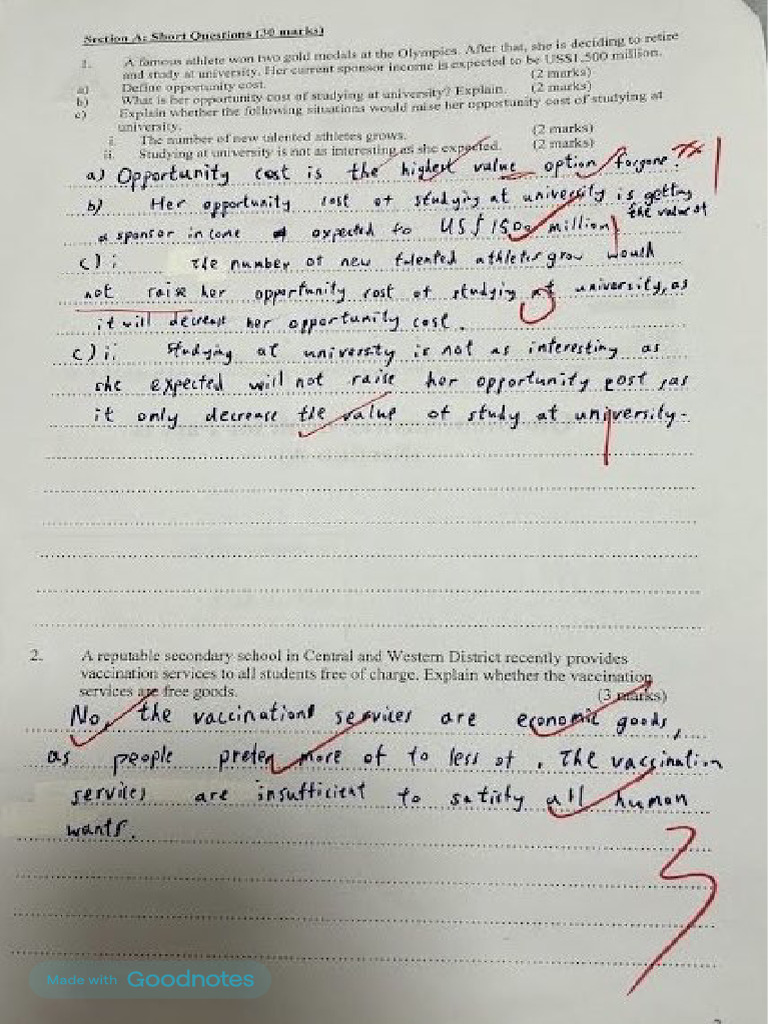 Section A: Short Questions (30 marks)
1. A famous athlete won two gold medals at the Olympics. After that, she is deciding to retire
and study at university. Her current sponsor income is expected to be US$1,500 million.
a) Define opportunity cost. (2 marks)
b) What is her opportunity cost of studying at university? Explain. (2 marks)
c) Explain whether the following situations would raise her opportunity cost of studying at
university.
i. The number of new talented athletes grows. (2 marks)
ii. Studying at university is not as interesting as she expected. (2 marks)
a) Opportunity cost is the highest value option forgone.
b) Her opportunity cost of studying at university is getting
the value of
a sponsor income expected to US$ 1500 million
c) i The number of new talented athletes grow would
not raise her opportunity cost of studying at university, as
it will decrease her opportunity cost.
c) ii Studying at university is not as interesting as
she expected will not raise her opportunity cost, as
it only decrease the value of study at university.
2. A reputable secondary school in Central and Western District recently provides
vaccination services to all students free of charge. Explain whether the vaccination
services are free goods. (3 marks)
No, the vaccinations services are economic goods,
as people prefer more of to less of. The vaccination
services are insufficient to satisfy all human
wants.
3
Made with Goodnotes